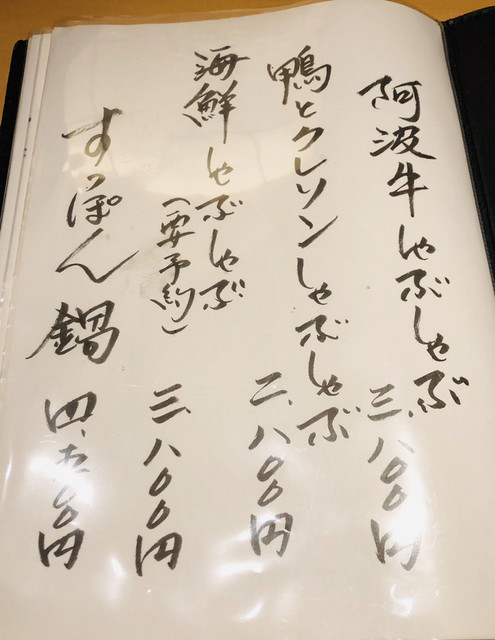 阿波牛しゃぶしゃぶ
三、八〇〇円
鴨とクレソンしゃぶしゃぶ
二、八〇〇円
海鮮しゃぶしゃぶ
(要予約)
三、八〇〇円
すっぽん鍋
四、五〇〇円